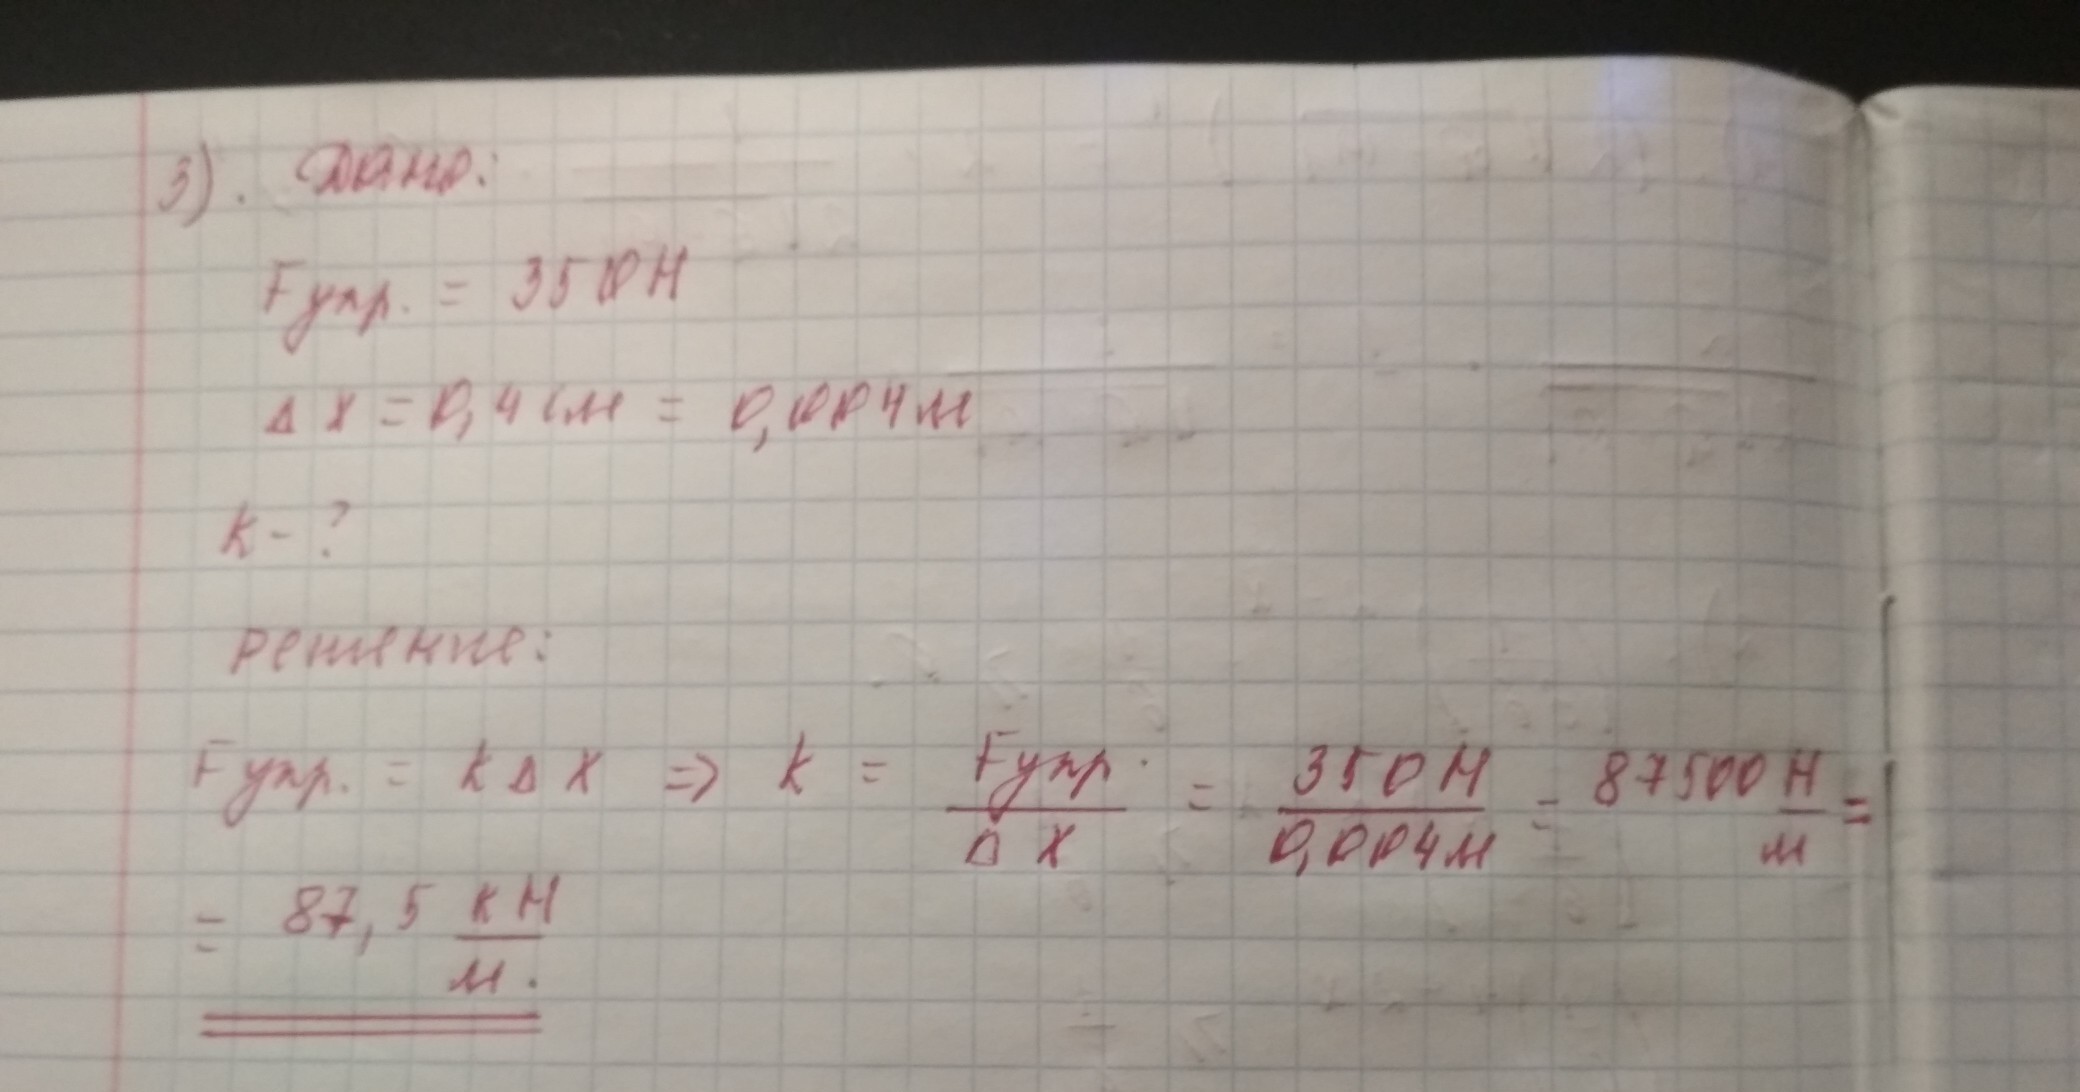 3). Дано:
Fупр. = 350Н
Δ X = 0,4 см = 0,004м
К - ?
решение:
Fупр. = k Δ X => k = Fупр. / Δ X = 350Н / 0,004м = 87500 Н/м =
= 87,5 кН/м.